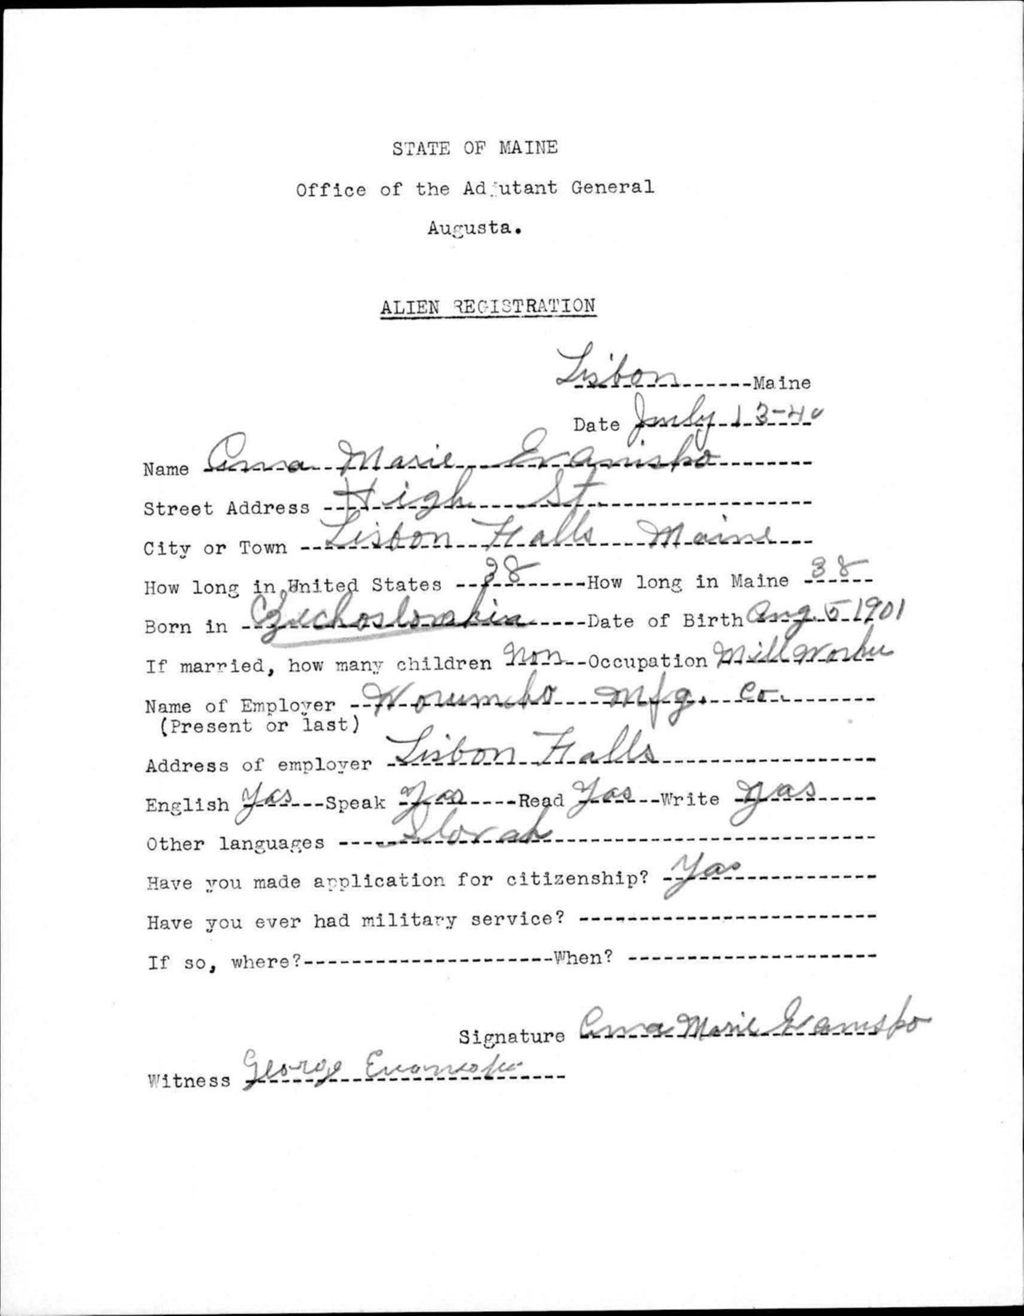 STATE OF MAINE
Office of the Adjutant General
Augusta.
ALIEN REGISTRATION
Lisbon Maine
Date July 13-40
Name Anna Marie Evanisko
Street Address High St.
City or Town Lisbon Falls Maine
How long in United States 38 How long in Maine 38
Born in Czechoslovakia Date of Birth Aug 5 1901
If married, how many children Non Occupation Mill Worker
Name of Employer Worumbo Mfg. Co.
(Present or last)
Address of employer Lisbon Falls
English Yas Speak Yas Read Yas Write yas
Other languages Slovak
Have you made application for citizenship? Yas
Have you ever had military service?
If so, where? When?
Signature Anna Marie Evanisko
Witness George Evanisko